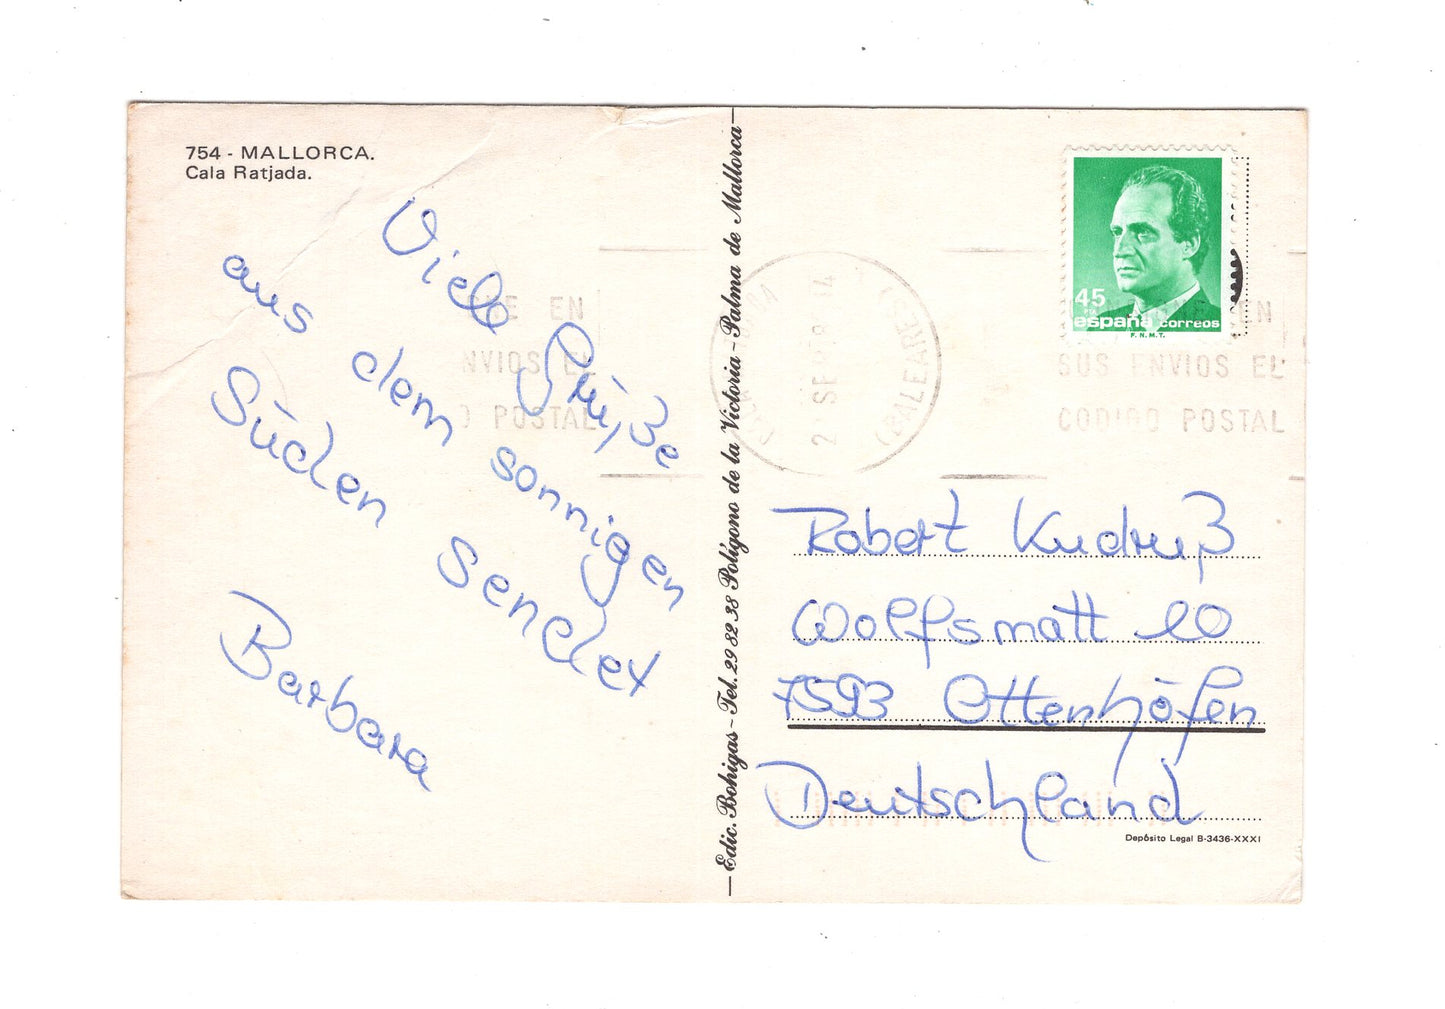 754 - MALLORCA.
Cala Ratjada.
Viele Grüße
aus dem sonnigen
Süden sendet
Barbara
Edic. Bohigas - Tel. 29 82 38 Polígono de la Victoria - Palma de Mallorca
45
PTA
españa correos
F.N.M.T.
EN
NVIOS EL
POSTAL
SEP
(BALEARES)
EN
SUS ENVIOS EL
CODIGO POSTAL
Robert Kudruß
Wolfsmatt 20
7593 Ottenhöfen
Deutschland
Depósito Legal B-3436-XXXI